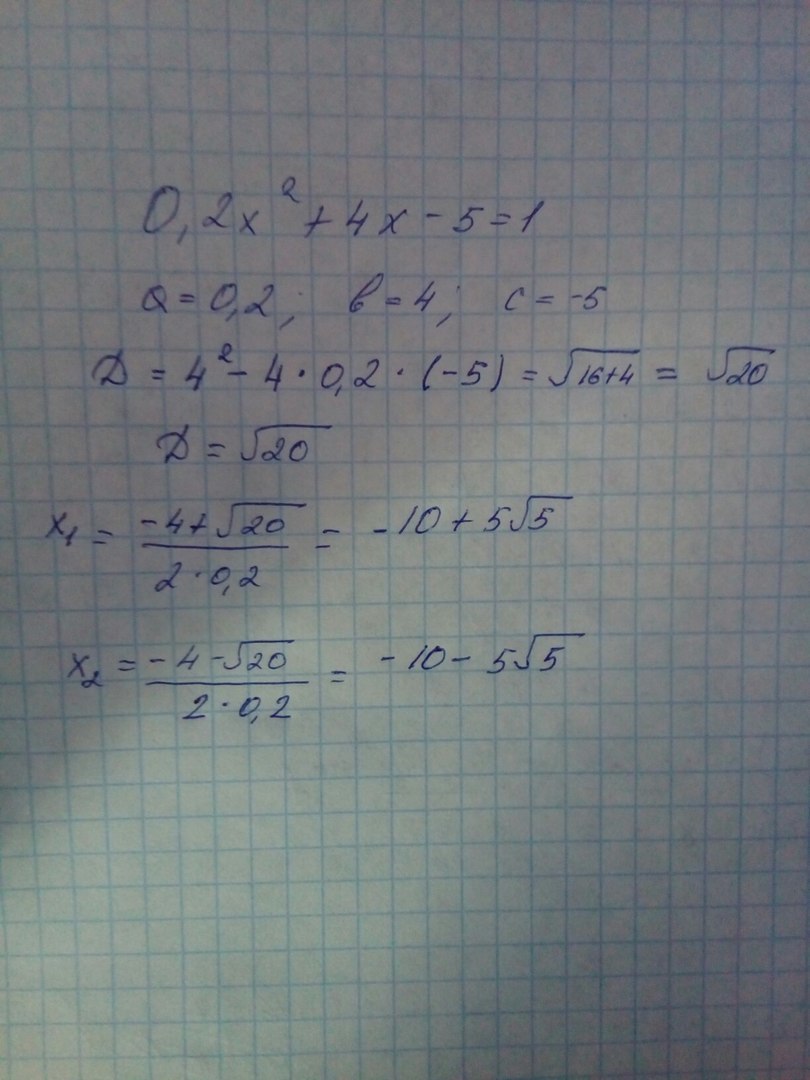 0,2x² + 4x - 5 = 1
a = 0,2; в = 4; c = -5
D = 4² - 4 · 0,2 · (-5) = √16+4 = √20
D = √20
x₁ = (-4+√20)/(2·0,2) = -10 + 5√5
x₂ = (-4-√20)/(2·0,2) = -10 - 5√5